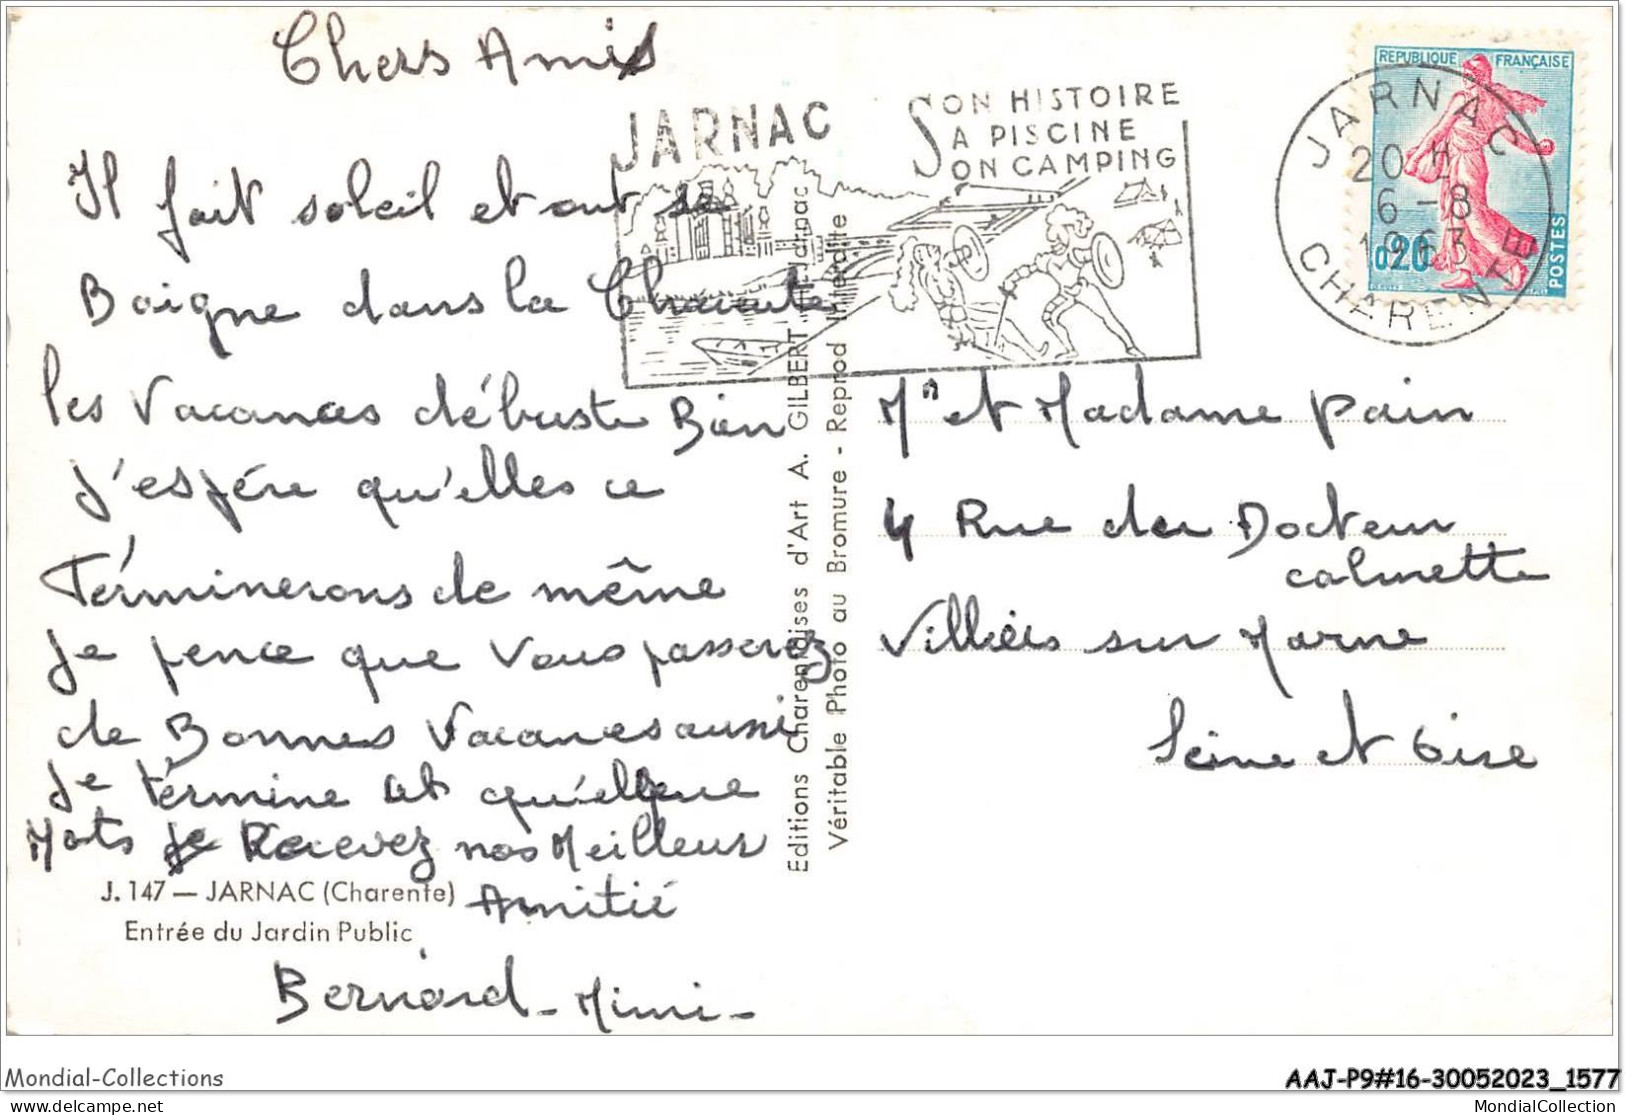 Chers Amis
Il fait soleil et ont se
Baigne dans la Charente
les Vacances débuste Bien
J'espére qu'elles ce
Términerons de même
Je pence que Vous passerez
de Bonnes Vacances aussi
Je términe
Mots je Recevez nos Meilleur
Amitié
Bernard - Mimi -
J. 147 — JARNAC (Charente)
Entrée du Jardin Public
Editions Charentaises d'Art A. GILBERT Jarnac
Véritable Photo au Bromure - Reprod Interdite
JARNAC
SON HISTOIRE
SA PISCINE
SON CAMPING
REPUBLIQUE FRANÇAISE
0,20
POSTES
JARNAC
20 H
6 - 8
1963
CHARENTE
Mr et Madame Pain
4 Rue du Docteur
calmette
Villiers sur Marne
Seine et Oise
Mondial-Collections
AAJ-P9#16-30052023_1577
delcampe.net
MondialCollection